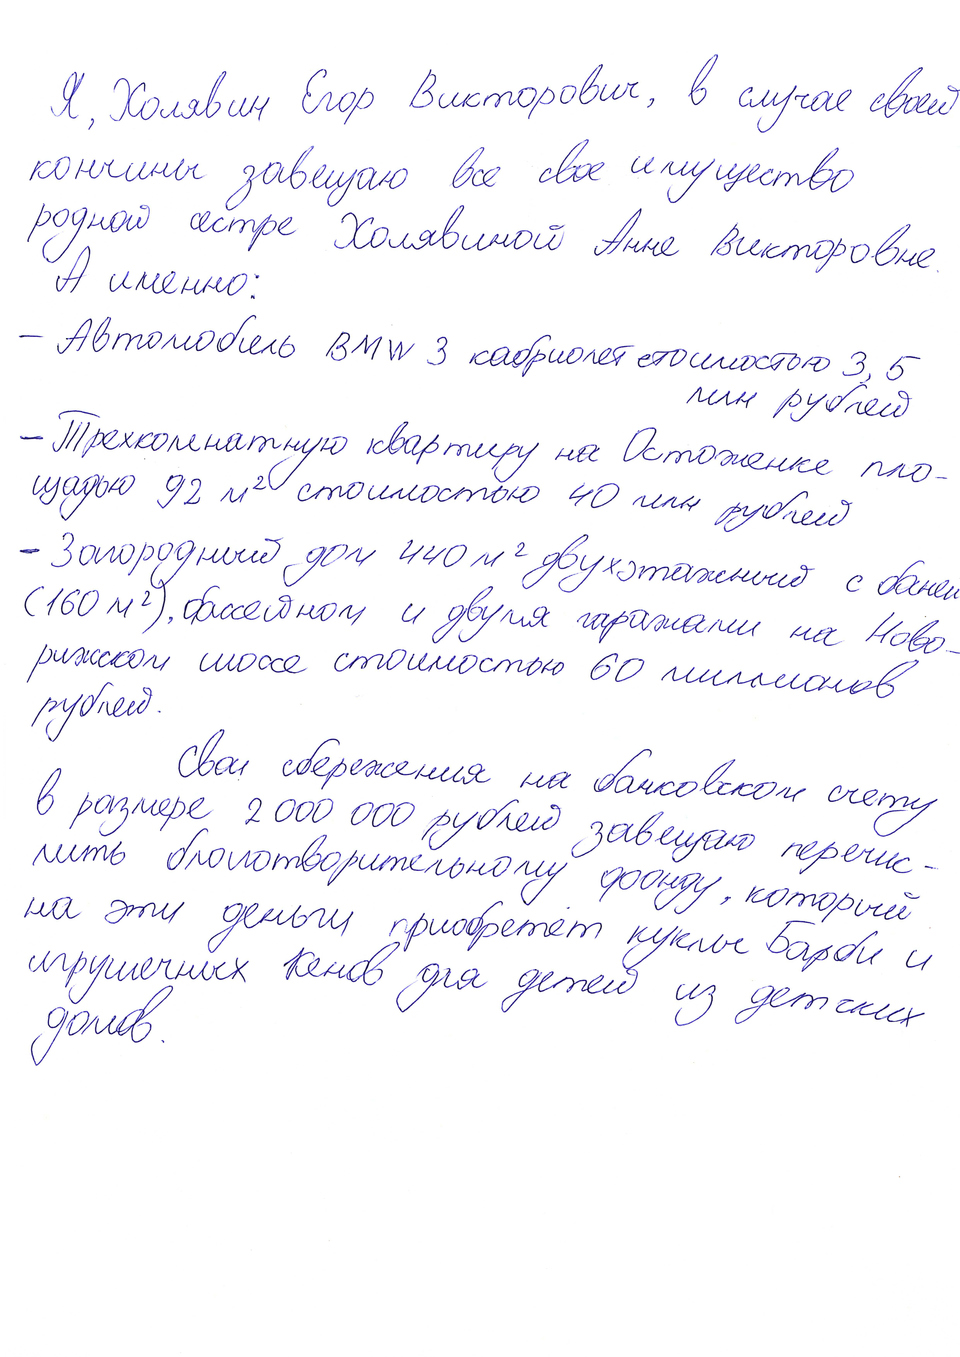 Я, Холявин Егор Викторович, в случае своей
кончины завещаю все свое имущество
родной сестре Холявиной Анне Викторовне.
А именно:
- Автомобиль BMW 3 кабриолет стоимостью 3,5
млн рублей
- Трехкомнатную квартиру на Остоженке пло-
щадью 92 м² стоимостью 40 млн рублей
- Загородный дом 440 м² двухэтажный с баней
(160 м²), бассейном и двумя гаражами на Ново-
рижском шоссе стоимостью 60 миллионов
рублей.
Свои сбережения на банковском счету
в размере 2 000 000 рублей завещаю перечис-
лить благотворительному фонду, который
на эти деньги приобретет куклы Барби и
игрушечных Кенов для детей из детских
домов.